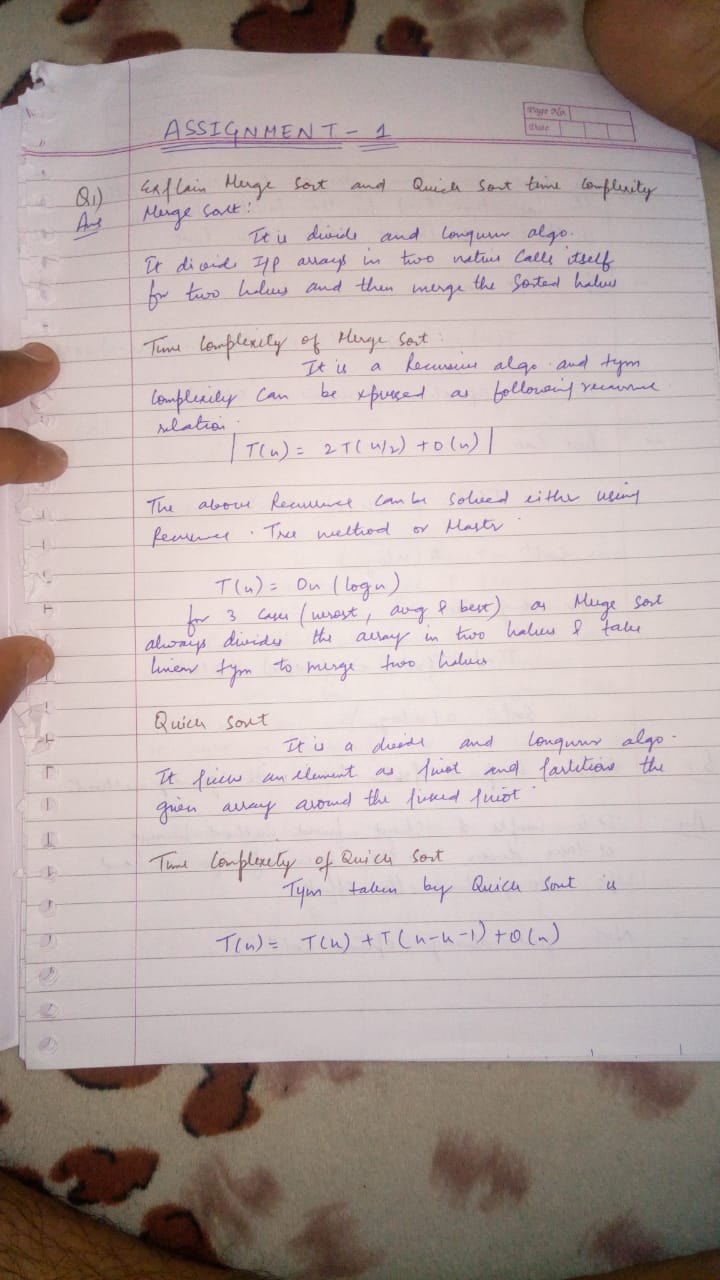 Page No.
Date
ASSIGNMENT - 1
Q1) Explain Merge Sort and Quick Sort time Complexity
Ans Merge Sort :
It is divide and Conquer algo.
It divide I/P arrays in two halves Calls itself
for two halves and then merge the Sorted halves
Time Complexity of Merge Sort :
It is a Recursive algo and tym
Complexity can be xpressed as following recurrence
relation.
| T(n) = 2T(n/2) + O(n) |
The above Recurrence can be Solved either using
Recurrence Tree method or Master
T(n) = On (logn)
for 3 Cases (worst, avg & best) as Merge Sort
always divides the array in two halves & take
linear tym to merge two halves
Quick Sort
It is a divide and Conquer algo.
It picks an element as pivot and partitions the
given array around the picked pivot
Time Complexity of Quick Sort
Tym taken by Quick Sort is
T(n) = T(k) + T(n-k-1) + O(n)